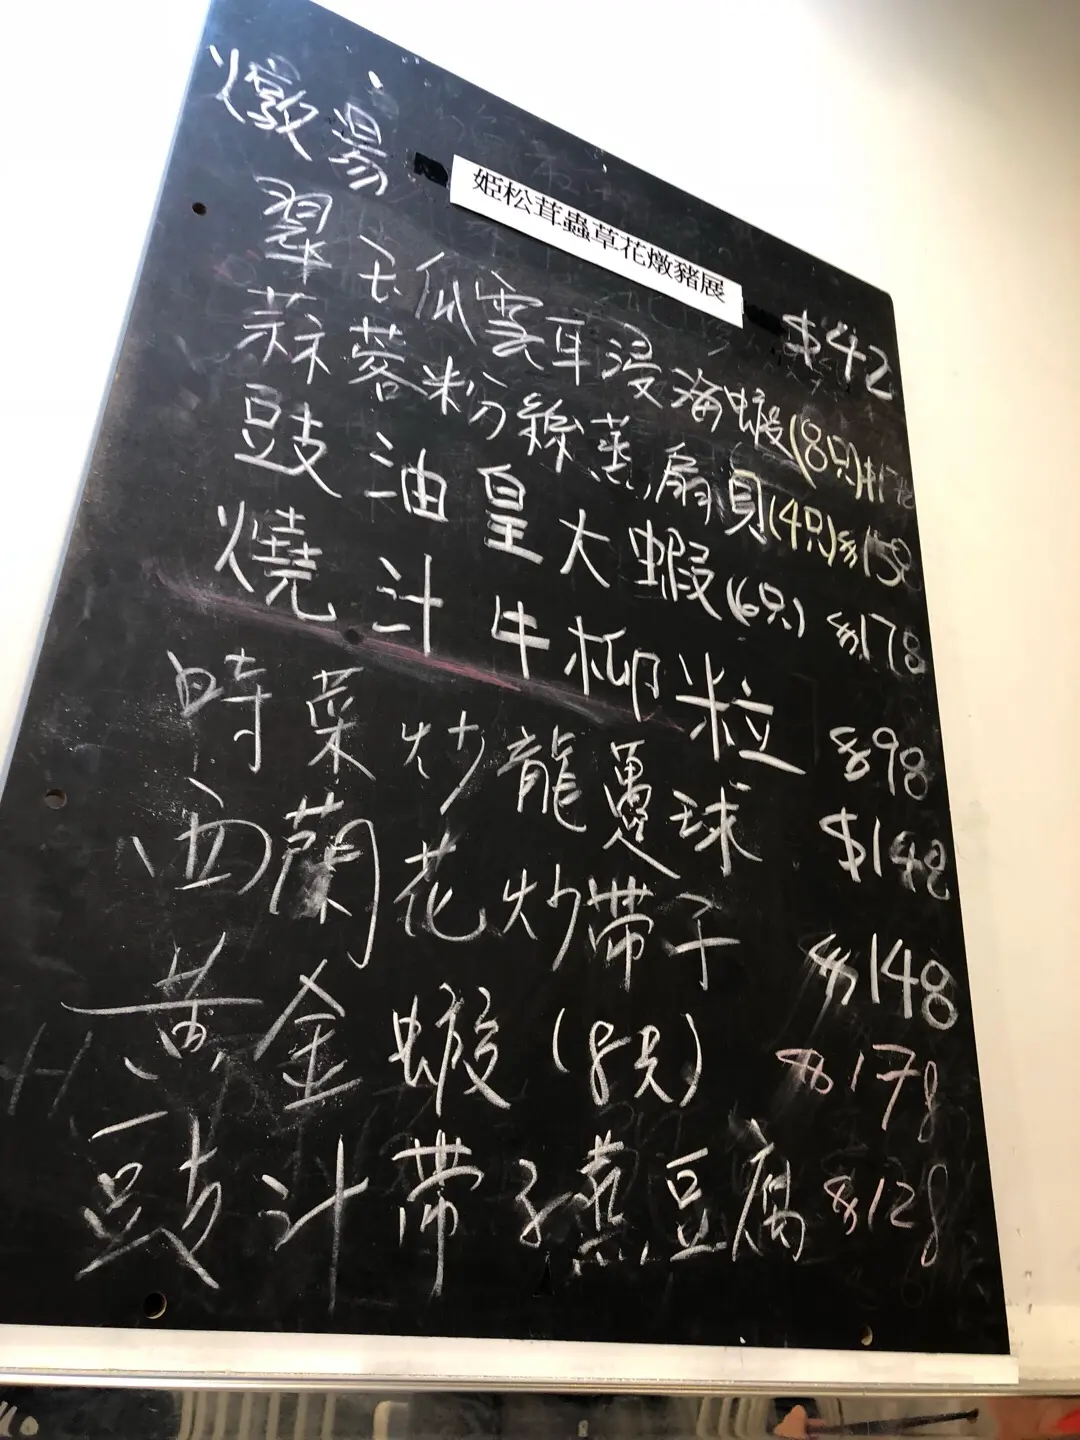 燉湯 姬松茸蟲草花燉豬展 $42
翠玉瓜雲耳浸海蝦(8只)$178
蒜蓉粉絲蒸扇貝(4只)$158
豉油皇大蝦(6只) $178
燒汁牛柳粒 $98
時菜炒龍躉球 $148
西蘭花炒帶子 $148
黃金蝦(8只) $178
豉汁帶子蒸豆腐 $128